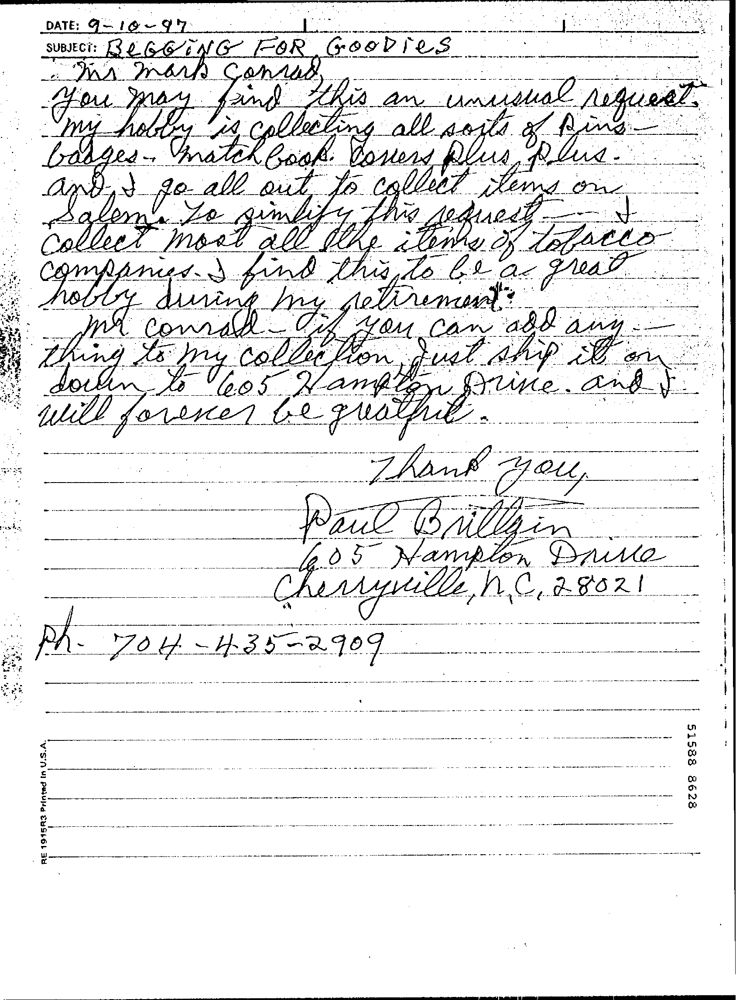 DATE: 9-10-97
SUBJECT: BEGGING FOR GOODIES
Mr Mark Conrad,
You may find this an unusual request.
My hobby is collecting all sorts of Pins -
badges - match book. Covers Plus, Plus.
and I go all out to collect items on
Salem. To simlify this request -- I
Collect most all the items of tobacco
companies. I find this to be a great
hobby during my retirement.
Mr Conrad - if you can add any -
thing to my collection, Just ship it on
down to 605 Hampton Drive. and I
will forever be greatful.
Thank you,
Paul Brillain
605 Hampton Drive
Cherryville, N.C, 28021
Ph. 704-435-2909
51588 8628
RE 1915R3 Printed in U.S.A.